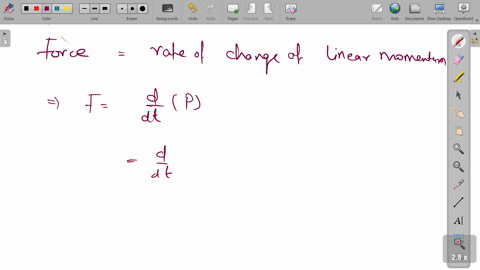 Stylus Color Line Eraser Background Undo Redo Pages Previous Next Erase Board Web Documents Show Desktop OpenBoard
Force = rate of change of linear momentum
⇒ F = d/dt (P)
= d/dt
2.8 x